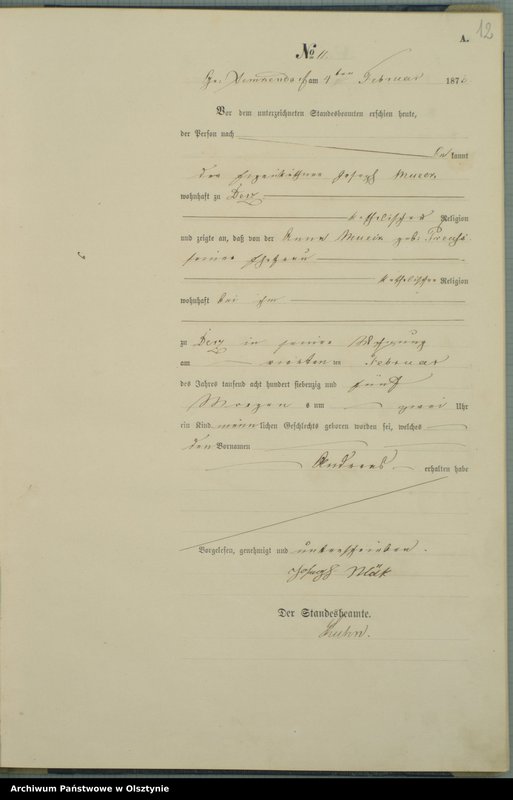 12
A.
No 11.
am 4ten Februar 1875
Vor dem unterzeichneten Standesbeamten erschien heute,
der Person nach
bekannt
der Eigenkäthner Joseph
wohnhaft zu Derz
katholischer Religion
und zeigte an, daß von der Anna geb.
seiner Ehefrau
katholischer Religion
wohnhaft bei ihm
zu Derz in seiner Wohnung
am vierten ten Februar
des Jahres tausend acht hundert siebenzig und fünf
Morgen s um zwei Uhr
ein Kind männlichen Geschlechts geboren worden sei, welches
den Vornamen
Andreas erhalten habe
Vorgelesen, genehmigt und unterschrieben.
Joseph
Der Standesbeamte.
Archiwum Państwowe w Olsztynie